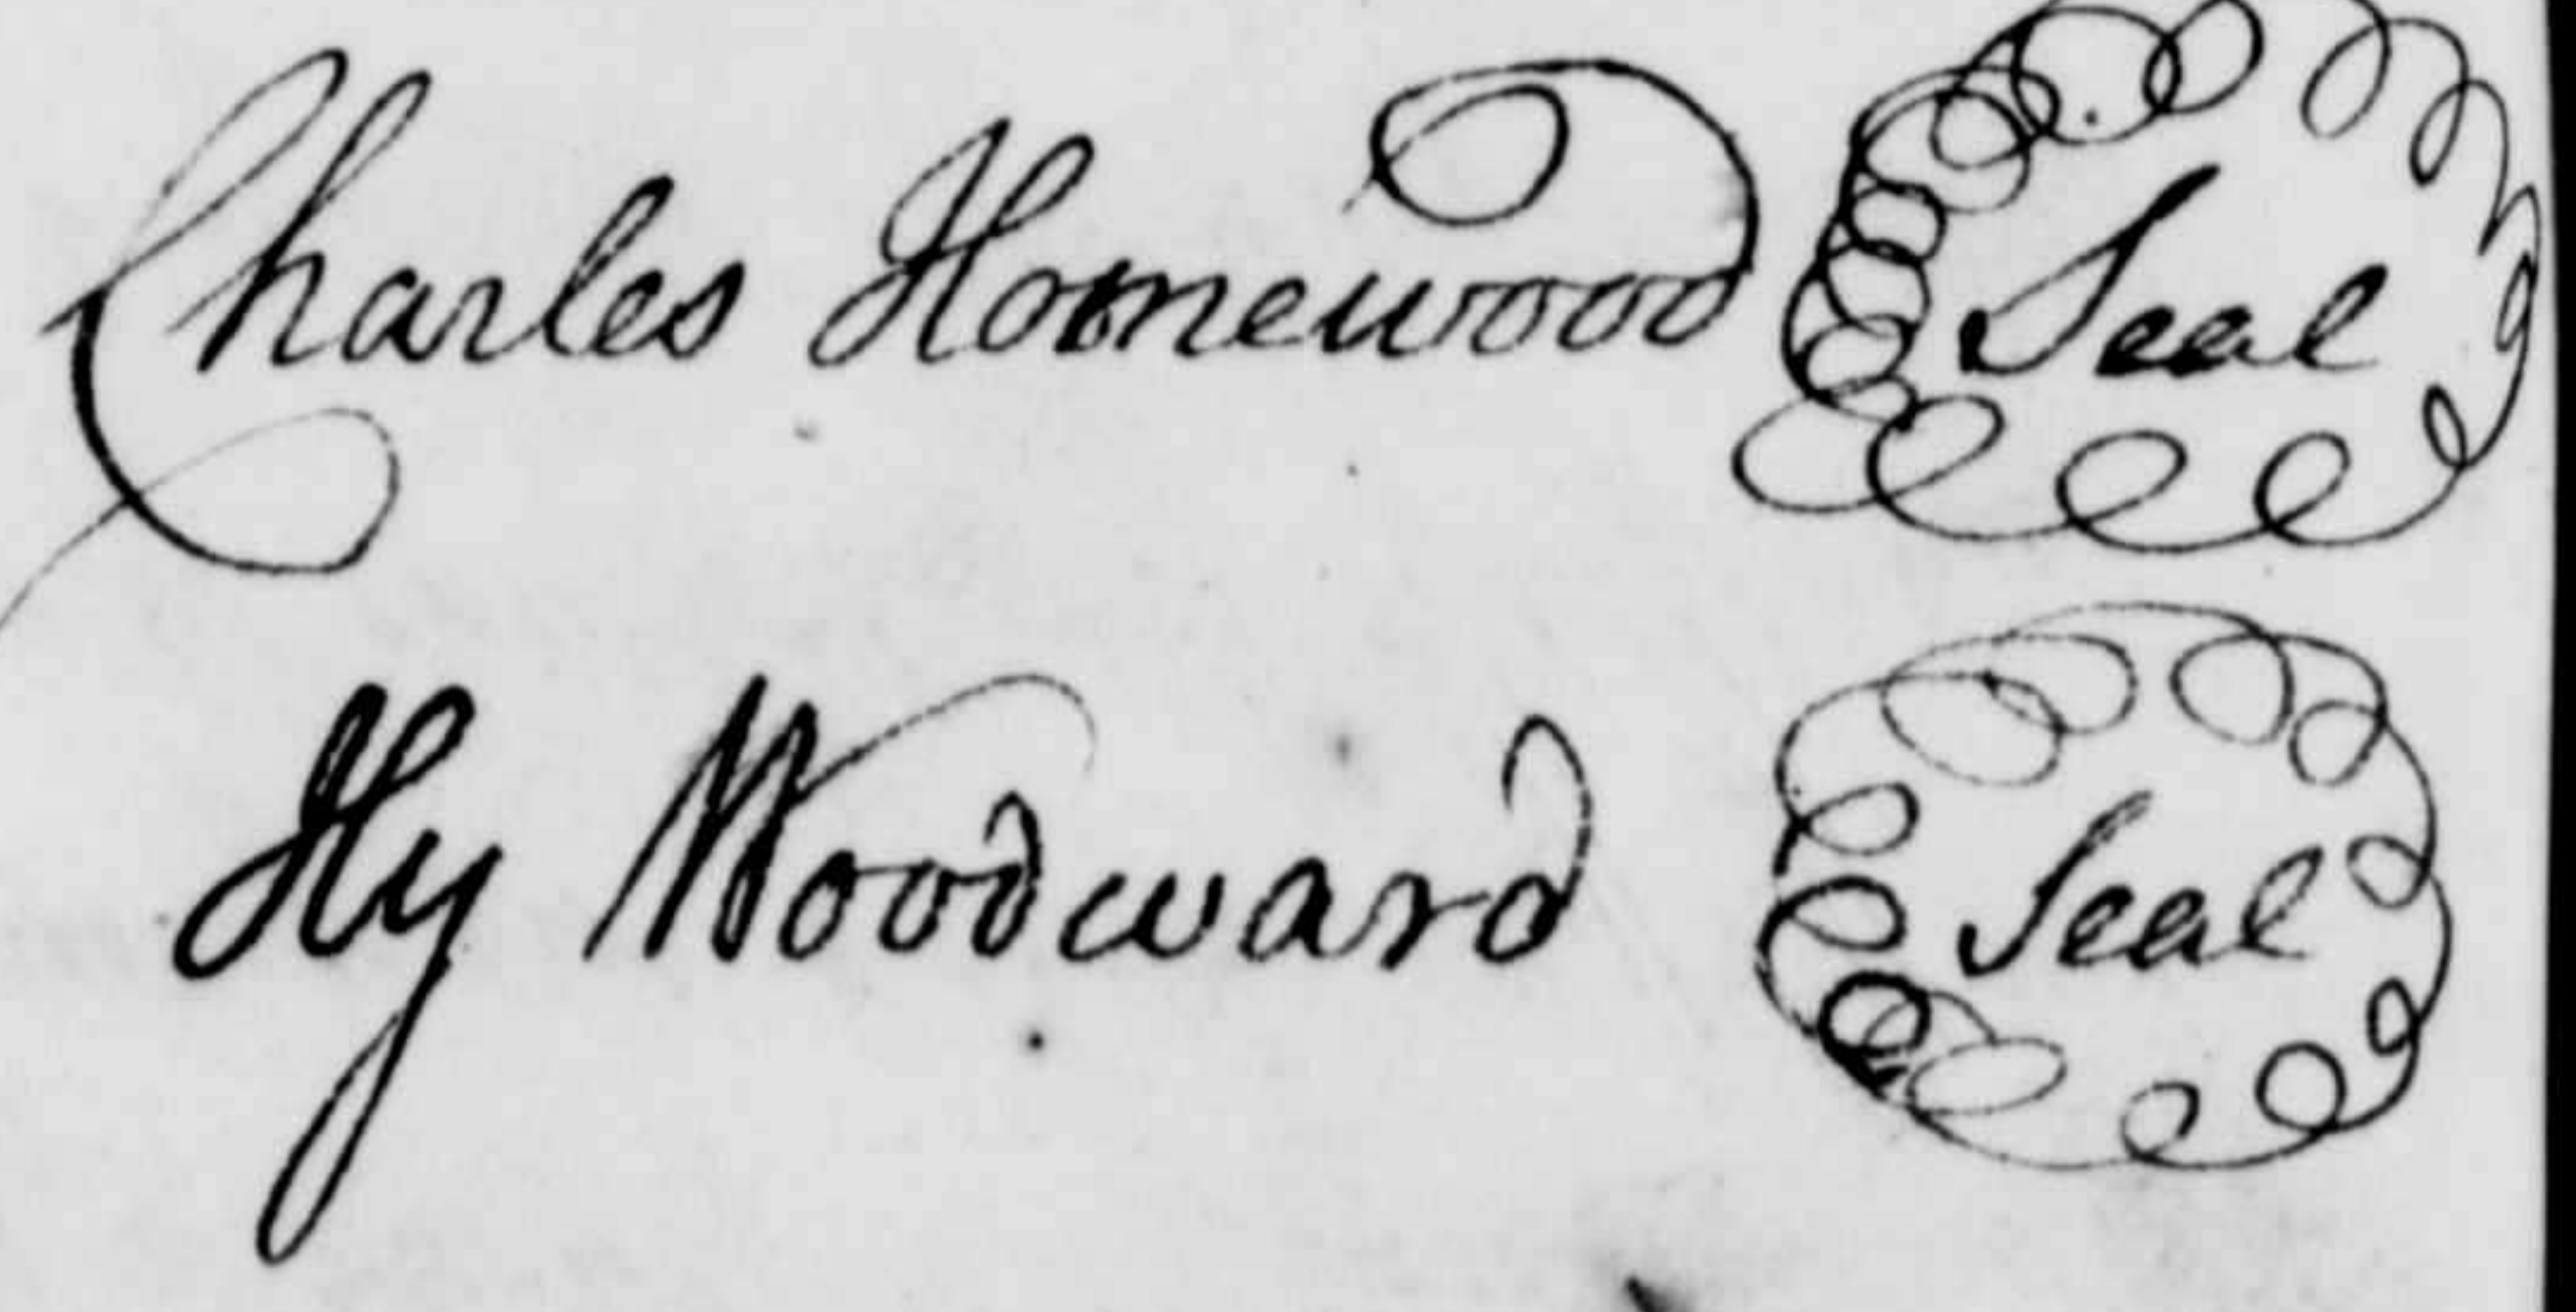 Charles Homewood Seal
Hy Woodward Seal